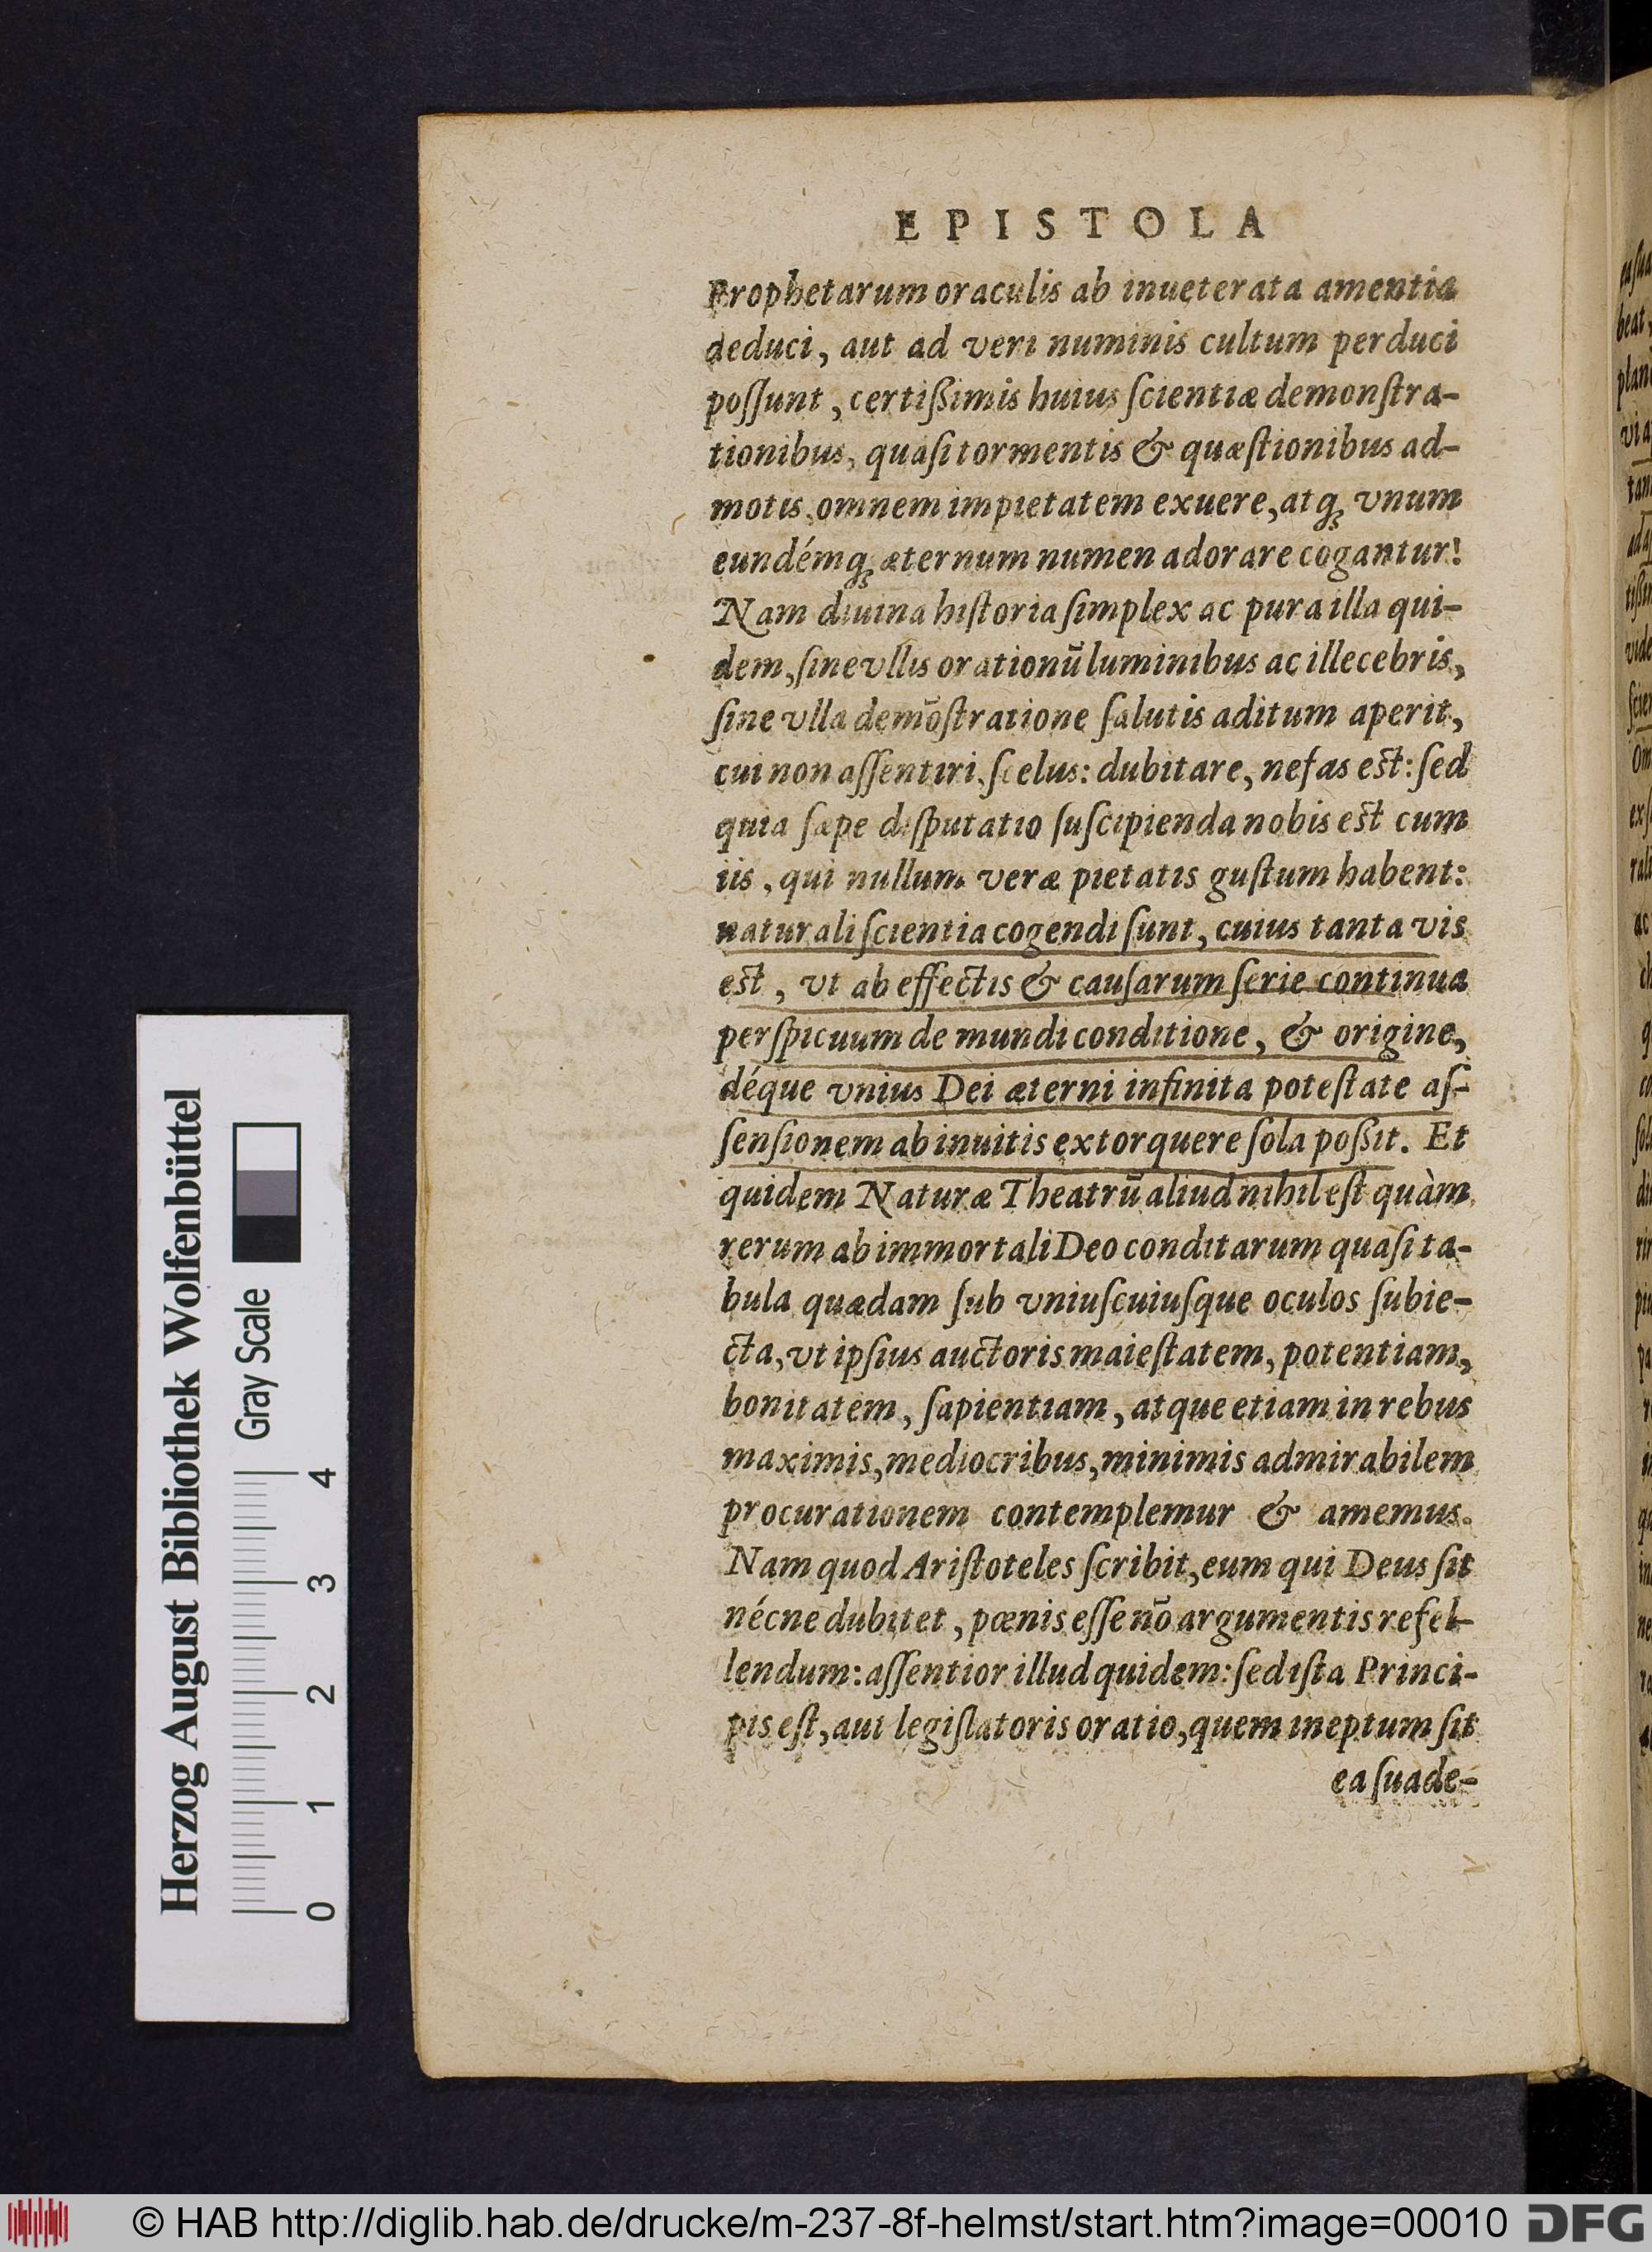 EPISTOLA
Prophetarum oraculis ab inueterata amentia
deduci, aut ad veri numinis cultum perduci
poſſunt, certißimis huius ſcientiæ demonſtra-
tionibus, quaſi tormentis & quæſtionibus ad-
motis, omnem impietatem exuere, atq; vnum
eundémq; æternum numen adorare cogantur!
Nam diuina hiſtoria ſimplex ac pura illa qui-
dem, ſine vllis orationū luminibus ac illecebris,
ſine vlla demōſtratione ſalutis aditum aperit,
cui non aſſentiri, ſcelus: dubitare, nefas est: ſed
quia ſæpe diſputatio ſuſcipienda nobis est cum
iis, qui nullum veræ pietatis guſtum habent:
naturali ſcientia cogendi ſunt, cuius tanta vis
est, vt ab effectis & cauſarum ſerie continua
perſpicuum de mundi conditione, & origine,
déque vnius Dei æterni infinita poteſtate aſ-
ſenſionem ab inuitis extorquere ſola poßit. Et
quidem Naturæ Theatrū aliud nihil eſt quàm
rerum ab immortali Deo conditarum quaſi ta-
bula quædam ſub vniuſcuiuſque oculos ſubie-
cta, vt ipſius auctoris maieſtatem, potentiam,
bonitatem, ſapientiam, atque etiam in rebus
maximis, mediocribus, minimis admirabilem
procurationem contemplemur & amemus.
Nam quod Ariſtoteles ſcribit, eum qui Deus ſit
nécne dubitet, pœnis eſſe nō argumentis refel-
lendum: aſſentior illud quidem: ſed iſta Princi-
pis eſt, aut legiſlatoris oratio, quem ineptum ſit
ea ſuade-
Herzog August Bibliothek Wolfenbüttel
Gray Scale
0 1 2 3 4
© HAB http://diglib.hab.de/drucke/m-237-8f-helmst/start.htm?image=00010
DFG